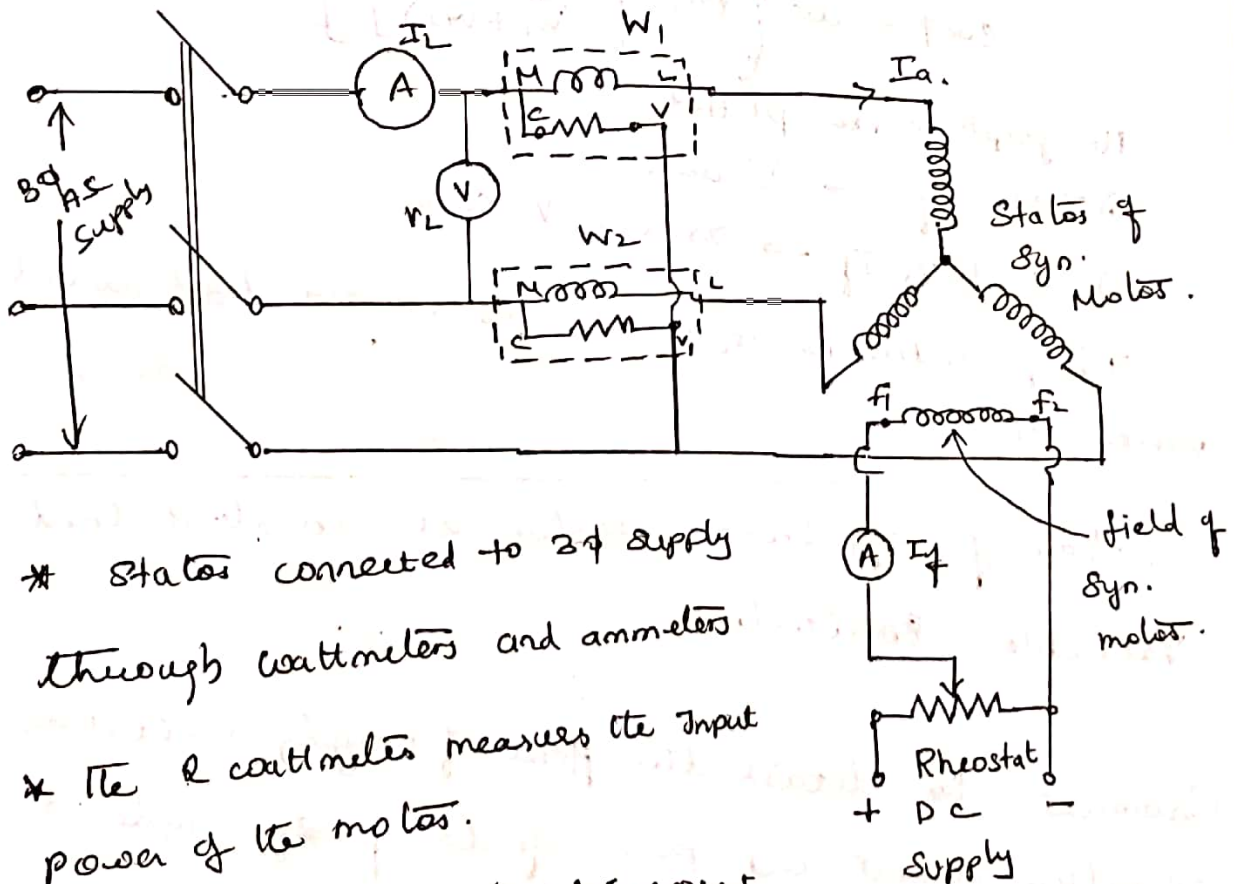 I_L
W1
A
M
L
C
V
Ia.
3ϕ AS
Supply
V
VL
W2
M
L
C
V
Stator of
Syn.
Motor.
f1
f2
A
If
field of
Syn.
motor.
Rheostat
+ DC −
Supply
* Stator connected to 3ϕ supply
through wattmeters and ammeters.
* The 2 wattmeter measures the Input
power of the motor.